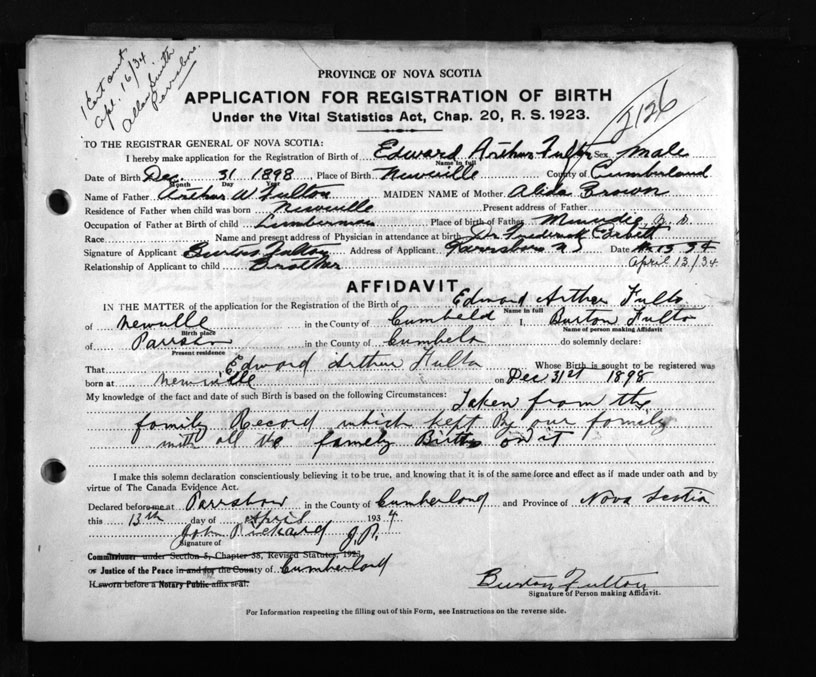 1 Cert out
Apr. 16/34
Allan Smith
Parrsboro.
PROVINCE OF NOVA SCOTIA
APPLICATION FOR REGISTRATION OF BIRTH
Under the Vital Statistics Act, Chap. 20, R. S. 1923.
2126
TO THE REGISTRAR GENERAL OF NOVA SCOTIA:
I hereby make application for the Registration of Birth of Edward Arthur Fulton Sex Male
Name in full
Date of Birth Dec. 31 1898 Place of Birth Newville County of Cumberland
Month Day Year
Name of Father Arthur W. Fulton MAIDEN NAME of Mother Alida Brown
Residence of Father when child was born Newville Present address of Father
Occupation of Father at Birth of child Lumberman Place of birth of Father Minudie N. S.
Race Name and present address of Physician in attendance at birth Dr. Frederick Corbett
Signature of Applicant Burton Fulton Address of Applicant Parrsboro NS Date 13 34
Relationship of Applicant to child Brother April 13/34
AFFIDAVIT
IN THE MATTER of the application for the Registration of the Birth of Edward Arthur Fulto
Name in full
of Newville in the County of Cumbeld I, Burton Fulto
Birth place Name of person making Affidavit
of Parrsboro in the County of Cumbela do solemnly declare:
Present residence
That Edward Arthur Fulto Whose Birth is sought to be registered was
born at Newville on Dec 31st 1898
My knowledge of the fact and date of such Birth is based on the following Circumstances: Taken from the
family Record which kept By our family
with all the famely Births on it
I make this solemn declaration conscientiously believing it to be true, and knowing that it is of the same force and effect as if made under oath and by
virtue of The Canada Evidence Act.
Declared before me at Parrsboro in the County of Cumberland and Province of Nova Scotia
this 13th day of April 1934.
John Rickard J.P.
Signature of
Commissioner under Section 5, Chapter 38, Revised Statutes, 1923
or Justice of the Peace in and for the County of Cumberland
If sworn before a Notary Public affix seal.
Burton Fulton
Signature of Person making Affidavit.
For Information respecting the filling out of this Form, see Instructions on the reverse side.